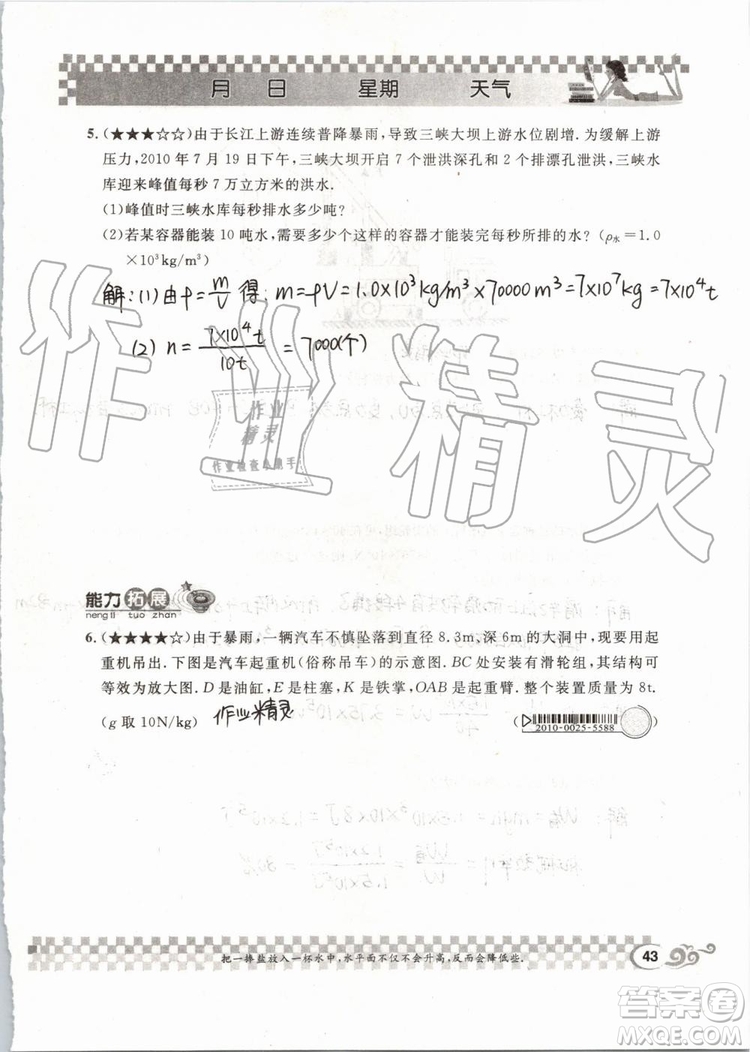 月 日 星期 天气
5. (★★★☆☆)由于长江上游连续普降暴雨,导致三峡大坝上游水位剧增.为缓解上游
压力,2010 年 7 月 19 日下午,三峡大坝开启 7 个泄洪深孔和 2 个排漂孔泄洪,三峡水
库迎来峰值每秒 7 万立方米的洪水.
(1)峰值时三峡水库每秒排水多少吨?
(2)若某容器能装 10 吨水,需要多少个这样的容器才能装完每秒所排的水?(ρ水=1.0
×10³kg/m³)
解:(1)由ρ=m/V得:m=ρV=1.0×10³kg/m³×70000m³=7×10⁷kg=7×10⁴t
(2) n=7×10⁴t/10t=7000(个)
作业精灵
作业
精灵
作业检查小助手
能力拓展
neng li tuo zhan
6. (★★★★☆)由于暴雨,一辆汽车不慎坠落到直径 8.3m,深 6m 的大洞中,现要用起
重机吊出.下图是汽车起重机(俗称吊车)的示意图.BC 处安装有滑轮组,其结构可
等效为放大图.D 是油缸,E 是柱塞,K 是铁掌,OAB 是起重臂.整个装置质量为 8t.
(g 取 10N/kg) 作业精灵
2010-0025-5588
把一捧盐放入一杯水中,水平面不仅不会升高,反而会降低些.
43
答案圈
MXQE.COM